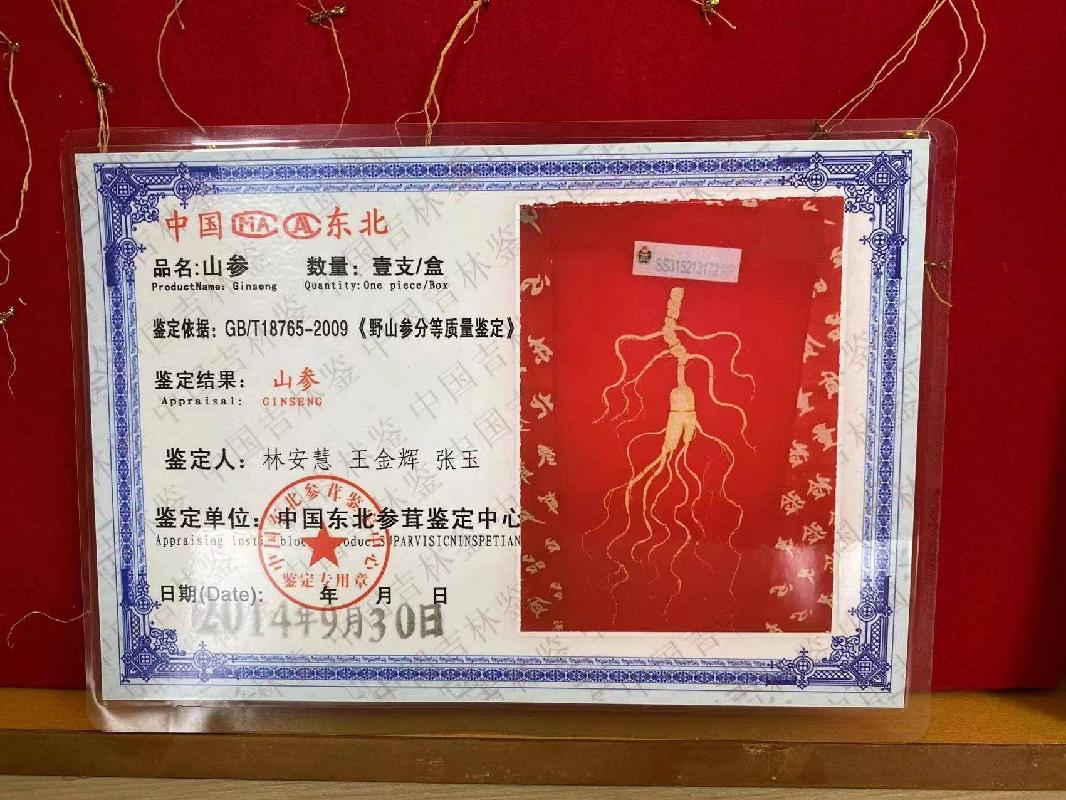 中国 MA A 东北
品名:山参 数量：壹支/盒
ProductName: Ginseng Quantity:One piece/Box
鉴定依据：GB/T18765-2009《野山参分等质量鉴定》
鉴定结果： 山参
Appraisal: GINSENG
鉴定人：林安慧 王金辉 张玉
鉴定单位：中国东北参茸鉴定中心
Appraising
日期(Date): 年 月 日
2014年9月30日
鉴定专用章
SS315213172
中国吉林鉴